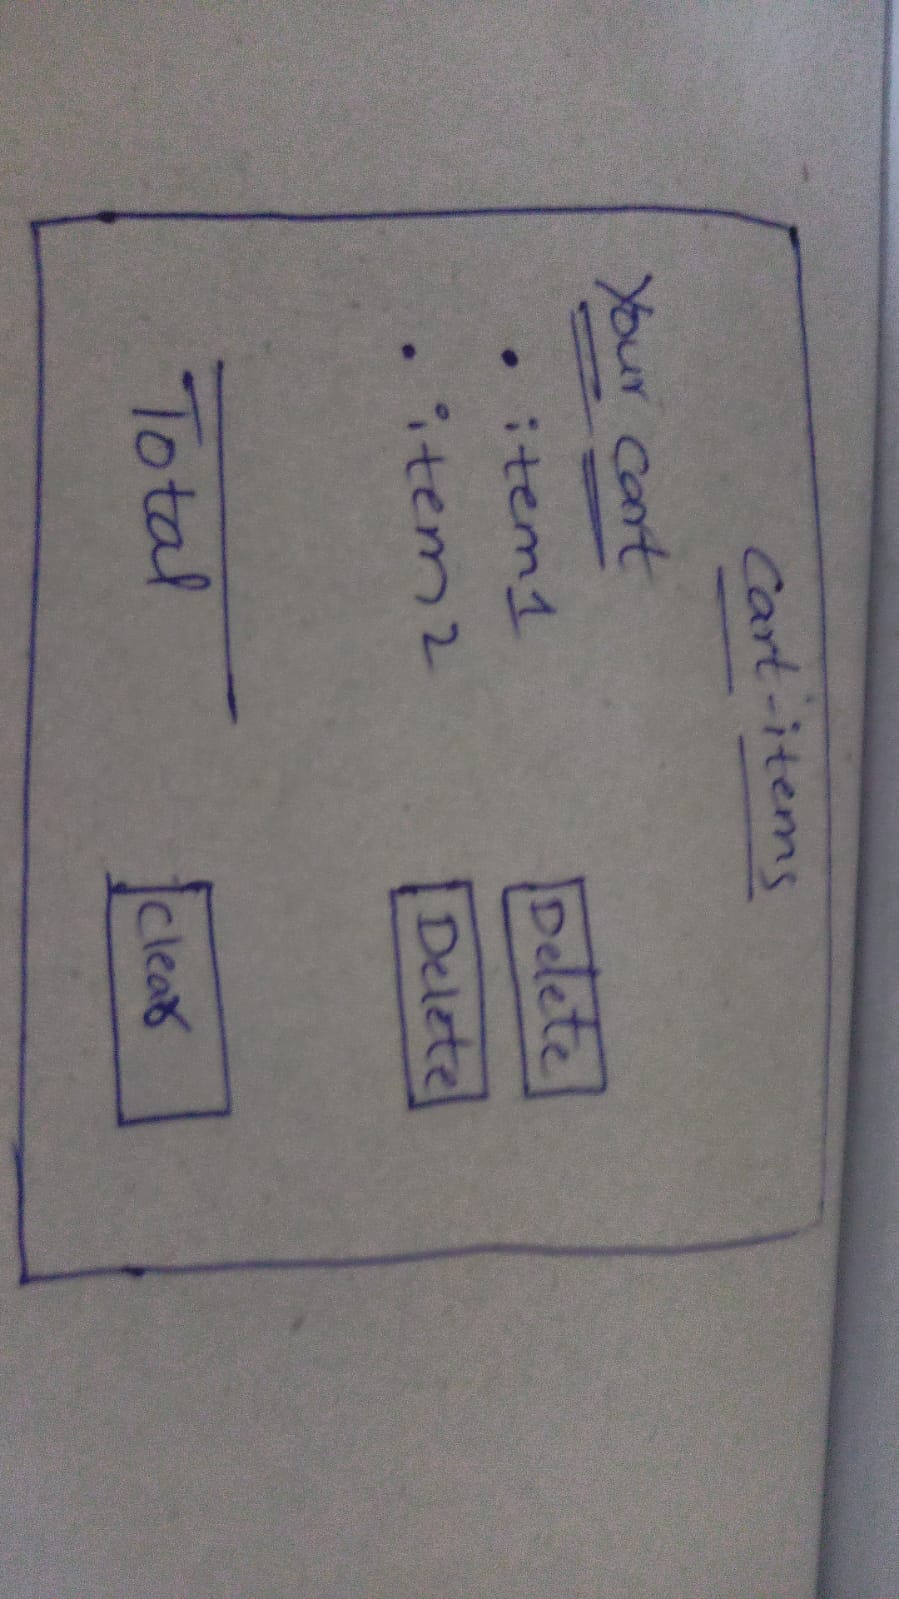 Cart-items
Your cart
• item1 Delete
• item 2 Delete
Total Clear